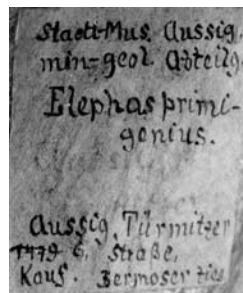 Stadt-Mus. Aussig.
min-geol. Abteilg.
Elephas primi-
genius.
Aussig, Türmitzer
Straße,
Kauf.